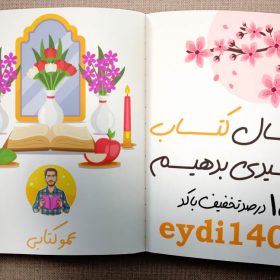 کتاب
بدهیم
درصد تخفیف با کد
eydi140
عمو کتابی